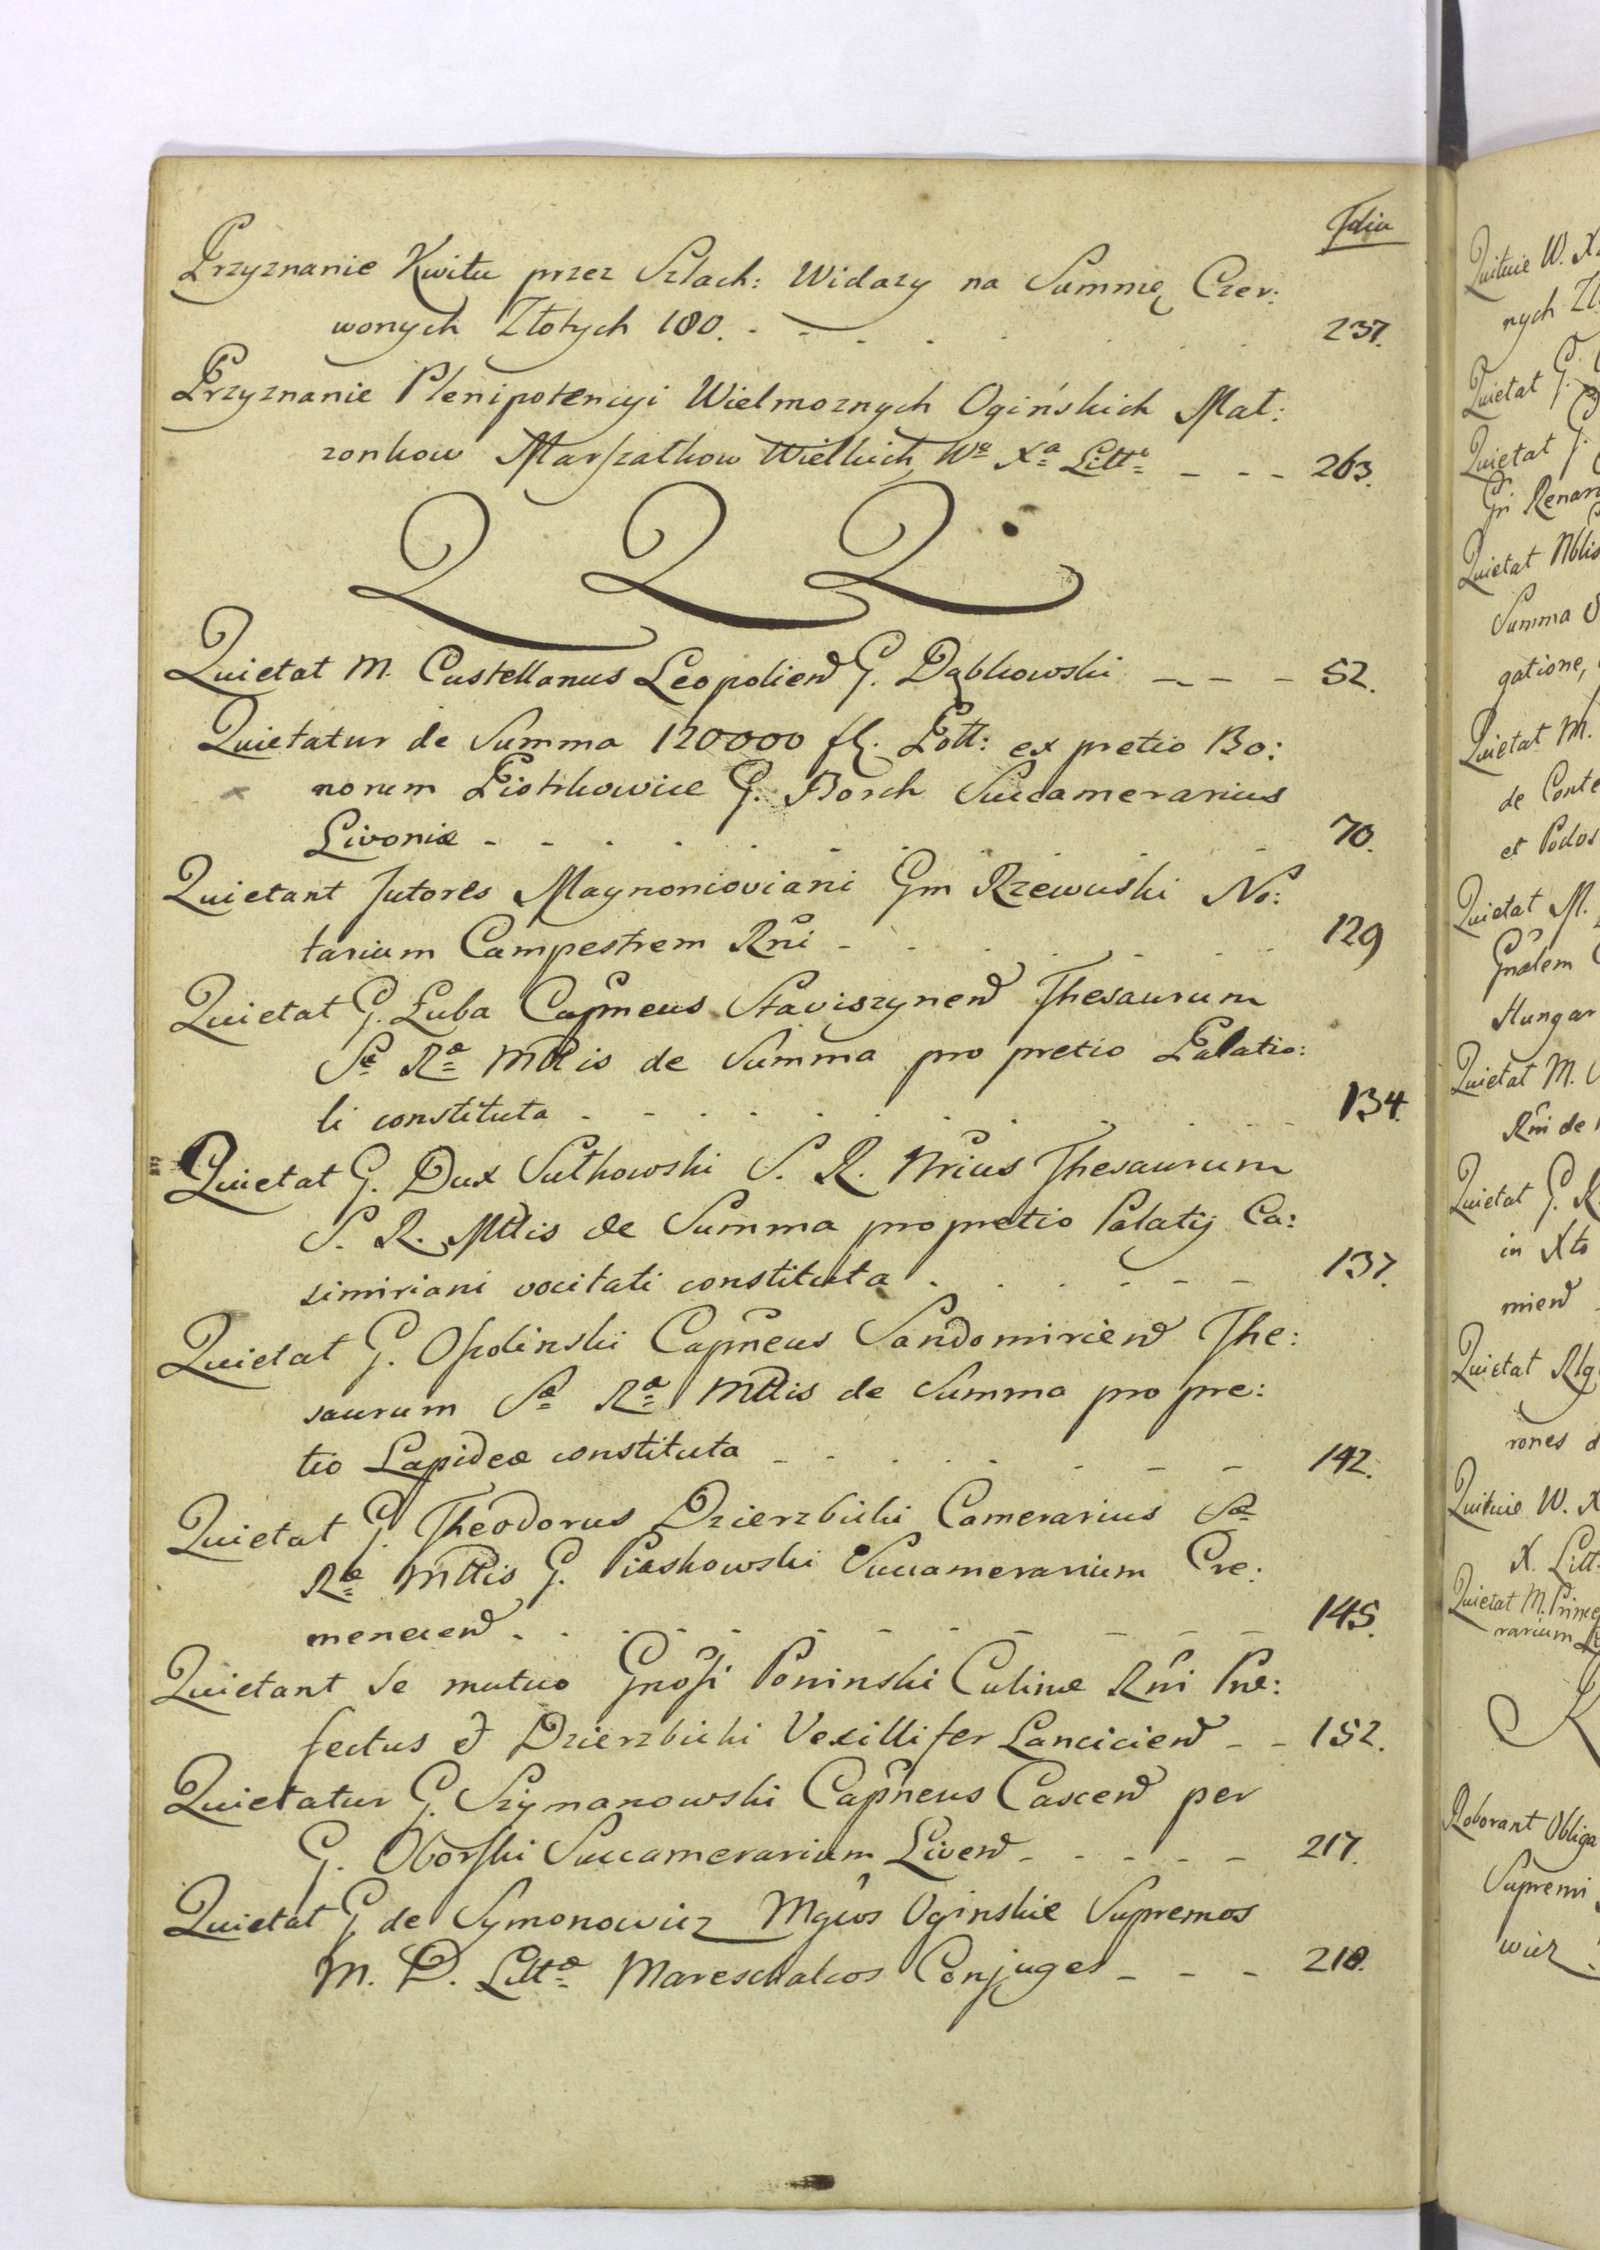 Folia
Przyznanie Kwitu przez Szlach: Widazy na Summę Czer:
wonych Złotych 100. - - - 237.
Przyznanie Plenipotencyi Wielmoznych Ogińskich Mał:
zonkow Marszałkow Wielkich Wo Xa Litto - - - 263.
Q Q Q
Quietat M. Castellanus Leopolien G. Dąbkowski - - - 52.
Quietatur de Summa 120000 fl. Poll: ex pretio Bo:
norum Piotrkowice G. Borch Succamerarius
Livoniæ - - - 70.
Quietant Tutores Maynonioviani Gm Rzewuski No:
tarium Campestrem Rni - - - 129
Quietat G. Łuba Capneus Staviszynen Thesaurum
Sæ Ræ Mttis de Summa pro pretio Palatio:
li constituta - - - 134.
Quietat G. Dux Sułkowski S. R. Mrius Thesaurum
S. R. Mttis de Summa pro pretio Palatij Ca:
simiriani vocitati constituta - - - 137.
Quietat G. Ossolinski Capneus Sandomirien The:
saurum Sæ Ræ Mttis de Summa pro pre:
tio Lapideæ constituta - - - 142.
Quietat G. Theodorus Dzierzbicki Camerarius Sæ
Ræ Mttis G. Piaskowski Succamerarium Cre:
menecen - - - 145.
Quietant se mutuo Gnosi Poninski Culinæ Rni Præ:
fectus et Dzierzbicki Vexillifer Lancicien - - 152.
Quietatur G. Szymanowski Capneus Cascen per
G. Oborski Succamerarium Liven - - - 217.
Quietat G. de Symonowicz Mgcos Oginskie Supremos
M. D. Littæ Mareschalcos Conjuges - - - 218.
Quituie W. X
nych Zł
Quietat G.
Quietat G.
Gri Renar
Quietat Nblis
Summa
gatione,
Quietat M.
de Conte
et Podos
Quietat M.
Gnalem
Hungar
Quietat M.
Rni de
Quietat G. R
in Xto
mien
Quietat Rlg
rones d
Quituie W. X
X. Litt
Quietat M. Princ
rarium
Roborant Obliga
Supremi
wicz